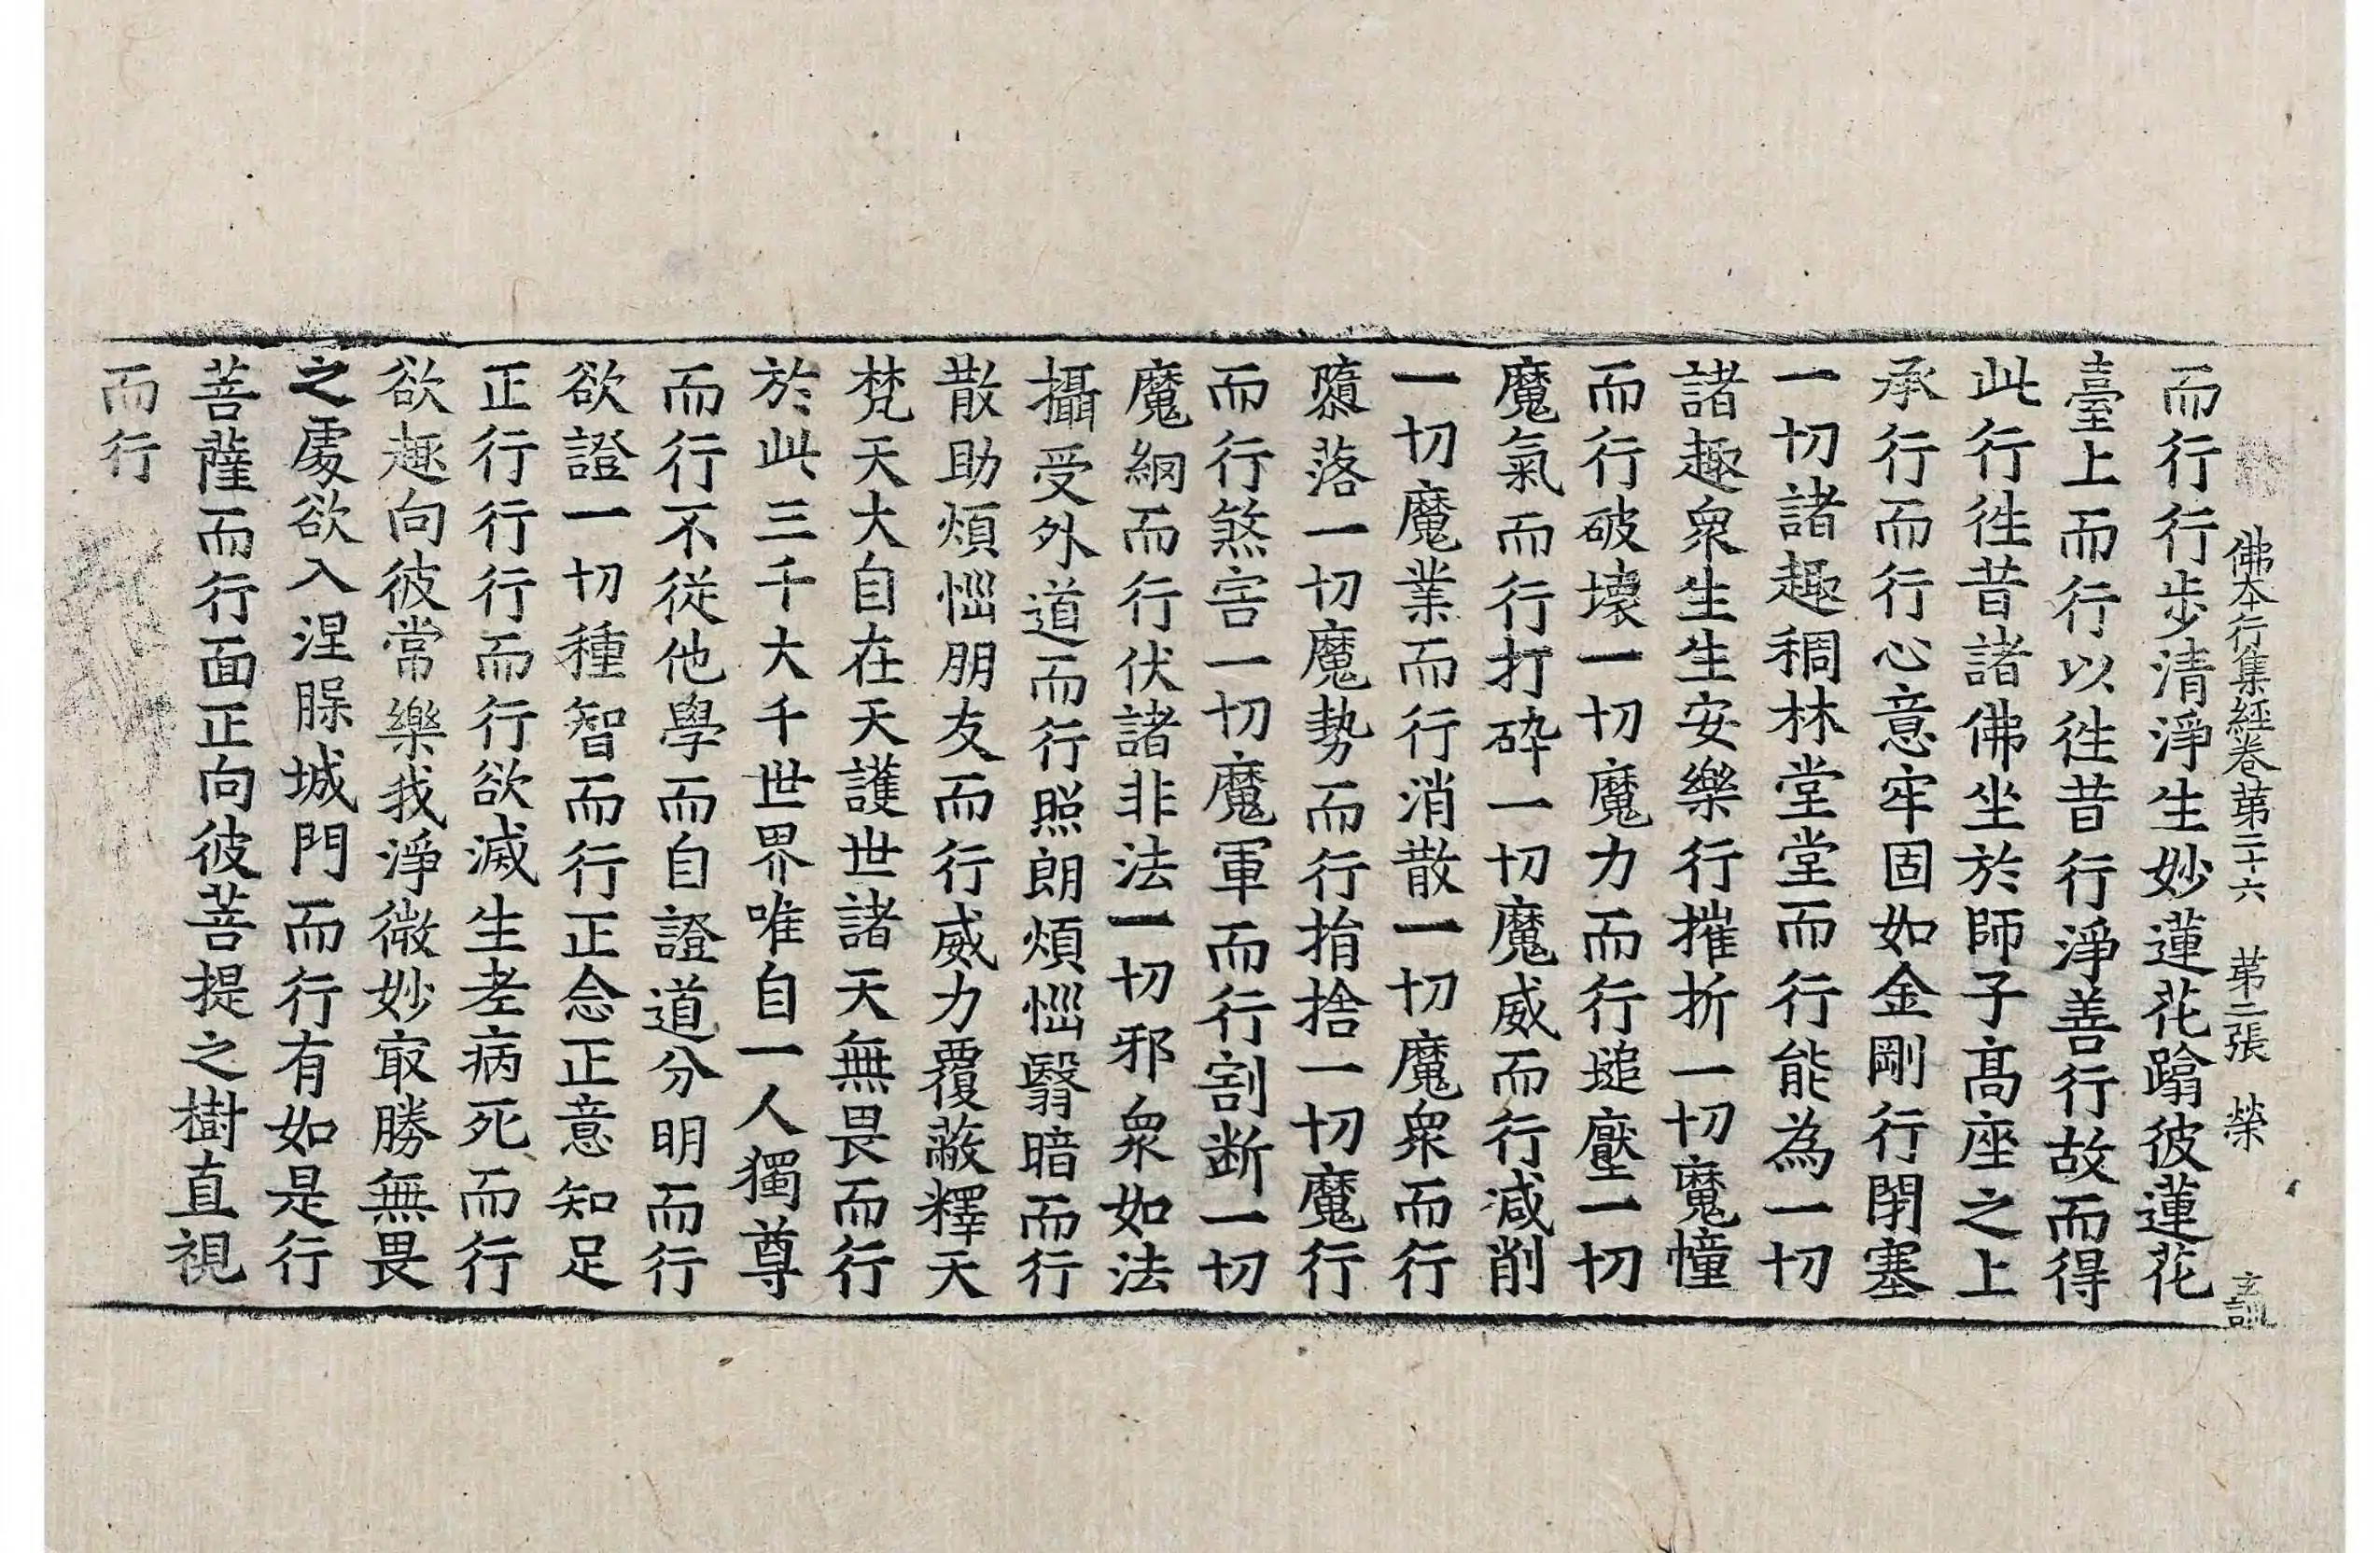 佛本行集經卷第二十六 第二張 榮
而行行步清淨生妙蓮花蹹彼蓮花
臺上而行以徃昔行淨善行故而得
此行徃昔諸佛坐於師子髙座之上
承行而行心意牢固如金剛行閇塞
一切諸趣稠林堂堂而行能為一切
諸趣衆生生安樂行摧折一切魔幢
而行破壞一切魔力而行搥壓一切
魔氣而行打碎一切魔威而行減削
一切魔業而行消散一切魔衆而行
隳落一切魔勢而行捐捨一切魔行
而行煞害一切魔軍而行割断一切
魔網而行伏諸非法一切邪衆如法
攝受外道而行照朗煩惱翳暗而行
散助煩惱朋友而行威力覆蔽釋天
梵天大自在天護世諸天無畏而行
於此三千大千世界唯自一人獨尊
而行不從他學而自證道分明而行
欲證一切種智而行正念正意知足
正行行行而行欲滅生老病死而行
欲趣向彼常樂我淨微妙㝡勝無畏
之處欲入涅槃城門而行有如是行
菩薩而行面正向彼菩提之樹直視
而行